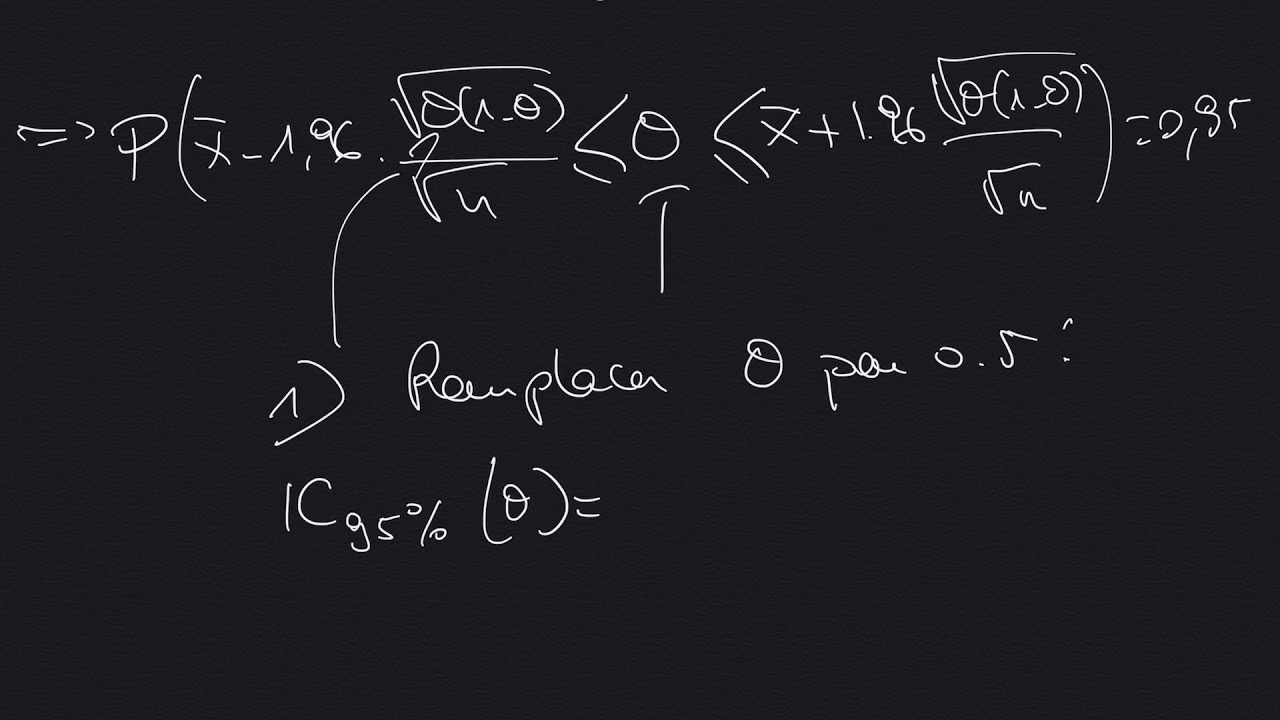 => P(x̄ - 1,96 · √θ(1-θ) / √n ≤ θ ≤ x̄ + 1.96 √θ(1-θ) / √n) = 0,95
1) Remplacer θ par 0.5 :
IC95% (θ) =